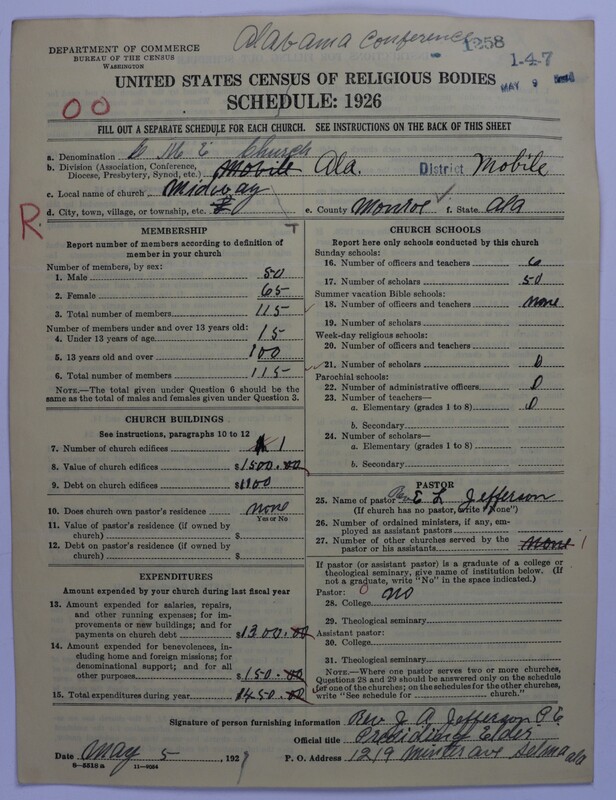 Alabama Conference
1258
DEPARTMENT OF COMMERCE
BUREAU OF THE CENSUS
WASHINGTON
1-4-7
MAY 9
UNITED STATES CENSUS OF RELIGIOUS BODIES
SCHEDULE: 1926
OO
FILL OUT A SEPARATE SCHEDULE FOR EACH CHURCH. SEE INSTRUCTIONS ON THE BACK OF THIS SHEET
a. Denomination C M E Church
b. Division (Association, Conference, Diocese, Presbytery, Synod, etc.) Mobile Ala. District Mobile
c. Local name of church Midway
d. City, town, village, or township, etc.
e. County Monroe ✓ f. State Ala
R.
MEMBERSHIP
Report number of members according to definition of member in your church
Number of members, by sex:
1. Male 50
2. Female 65
3. Total number of members 115
Number of members under and over 13 years old:
4. Under 13 years of age 15
5. 13 years old and over 100
6. Total number of members 115
NOTE.—The total given under Question 6 should be the same as the total of males and females given under Question 3.
CHURCH BUILDINGS
See instructions, paragraphs 10 to 12
7. Number of church edifices 1
8. Value of church edifices $1500.00
9. Debt on church edifices $1100
10. Does church own pastor's residence? none
Yes or No
11. Value of pastor's residence (if owned by church) $
12. Debt on pastor's residence (if owned by church) $
EXPENDITURES
Amount expended by your church during last fiscal year
13. Amount expended for salaries, repairs, and other running expenses; for improvements or new buildings; and for payments on church debt $1300.00
14. Amount expended for benevolences, including home and foreign missions; for denominational support; and for all other purposes $150.00
15. Total expenditures during year $1450.00
CHURCH SCHOOLS
Report here only schools conducted by this church
Sunday schools:
16. Number of officers and teachers 6
17. Number of scholars 50
Summer vacation Bible schools:
18. Number of officers and teachers none
19. Number of scholars
Week-day religious schools:
20. Number of officers and teachers
21. Number of scholars 0
Parochial schools:
22. Number of administrative officers 0
23. Number of teachers—
a. Elementary (grades 1 to 8) 0
b. Secondary
24. Number of scholars—
a. Elementary (grades 1 to 8)
b. Secondary
PASTOR
25. Name of pastor Rev E L Jefferson
(If church has no pastor, write "None")
26. Number of ordained ministers, if any, employed as assistant pastors
27. Number of other churches served by the pastor or his assistants none 1
If pastor (or assistant pastor) is a graduate of a college or theological seminary, give name of institution below. (If not a graduate, write "No" in the space indicated.)
Pastor: 0 no
28. College
29. Theological seminary
Assistant pastor:
30. College
31. Theological seminary
NOTE.—Where one pastor serves two or more churches, Questions 28 and 29 should be answered only on the schedule for one of the churches; on the schedules for the other churches, write "See schedule for ........ church."
Signature of person furnishing information Rev J A Jefferson P E
Official title Presiding Elder
Date May 5, 1927
P. O. Address 1219 Minter ave Selma ala
8—5518a 11—9054